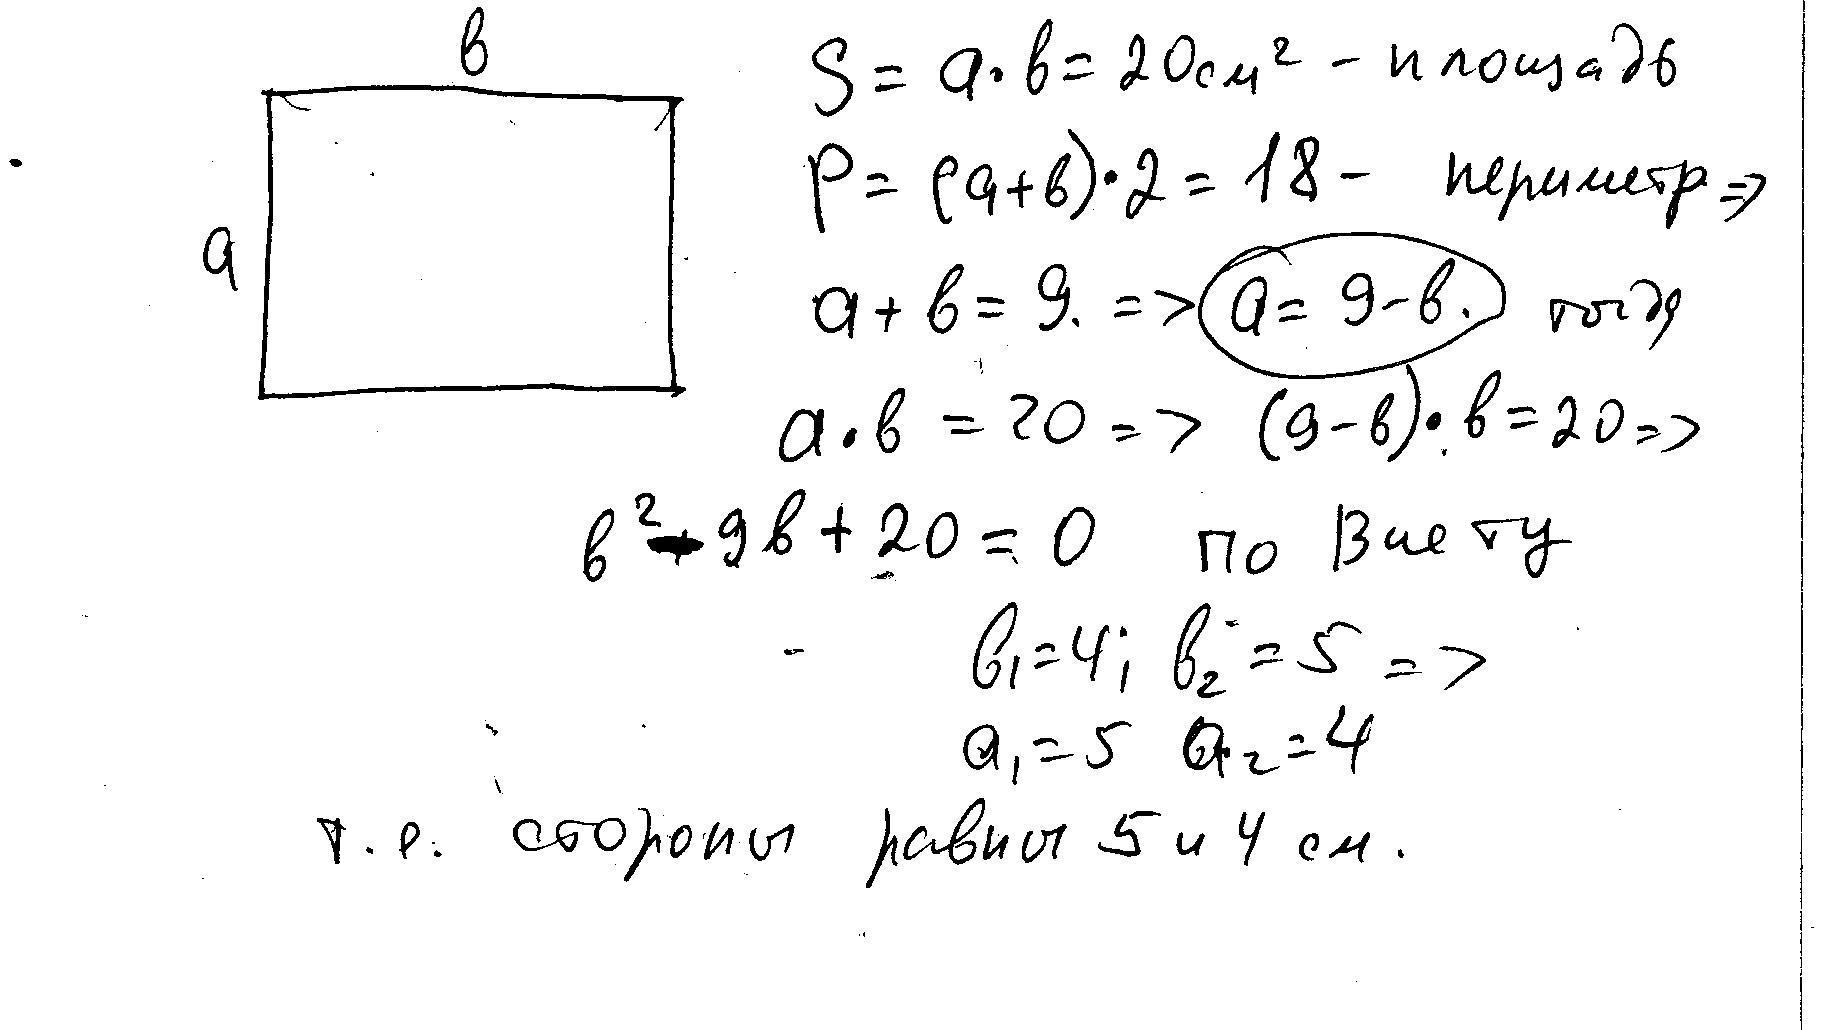 в
а
S = а·в = 20см² – площадь
P = (а+в)·2 = 18 – периметр =>
а + в = 9. => а = 9 – в. тогда
а·в = 20 => (9–в)·в = 20 =>
в² – 9в + 20 = 0 по Виету
в₁ = 4; в₂ = 5 =>
а₁ = 5 а₂ = 4
т.е. стороны равны 5 и 4 см.